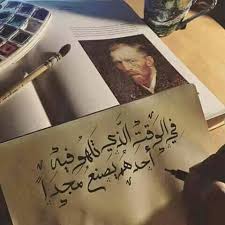 في الوقت الذي تلهو فيه
أحدهم يصنع مجداً